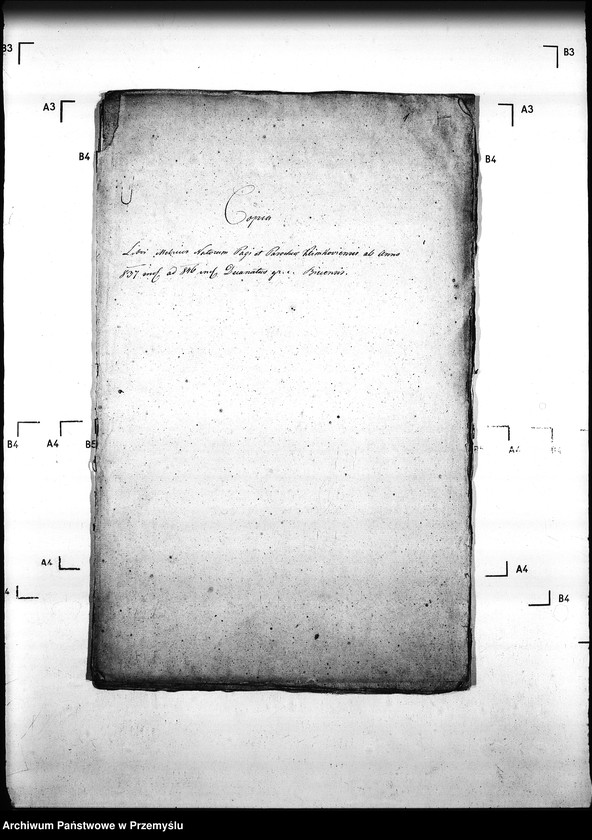 B3
B3
A3
A3
B4
B4
Copia
Libri Metrices Natorum Pagi et Parochiæ Klimkoviensis ab Anno
837 incl. ad 846 incl. Decanatus gr. c. Biecensis.
B4
A4
B5
A4
B4
A4
A4
4
B4
Archiwum Państwowe w Przemyślu